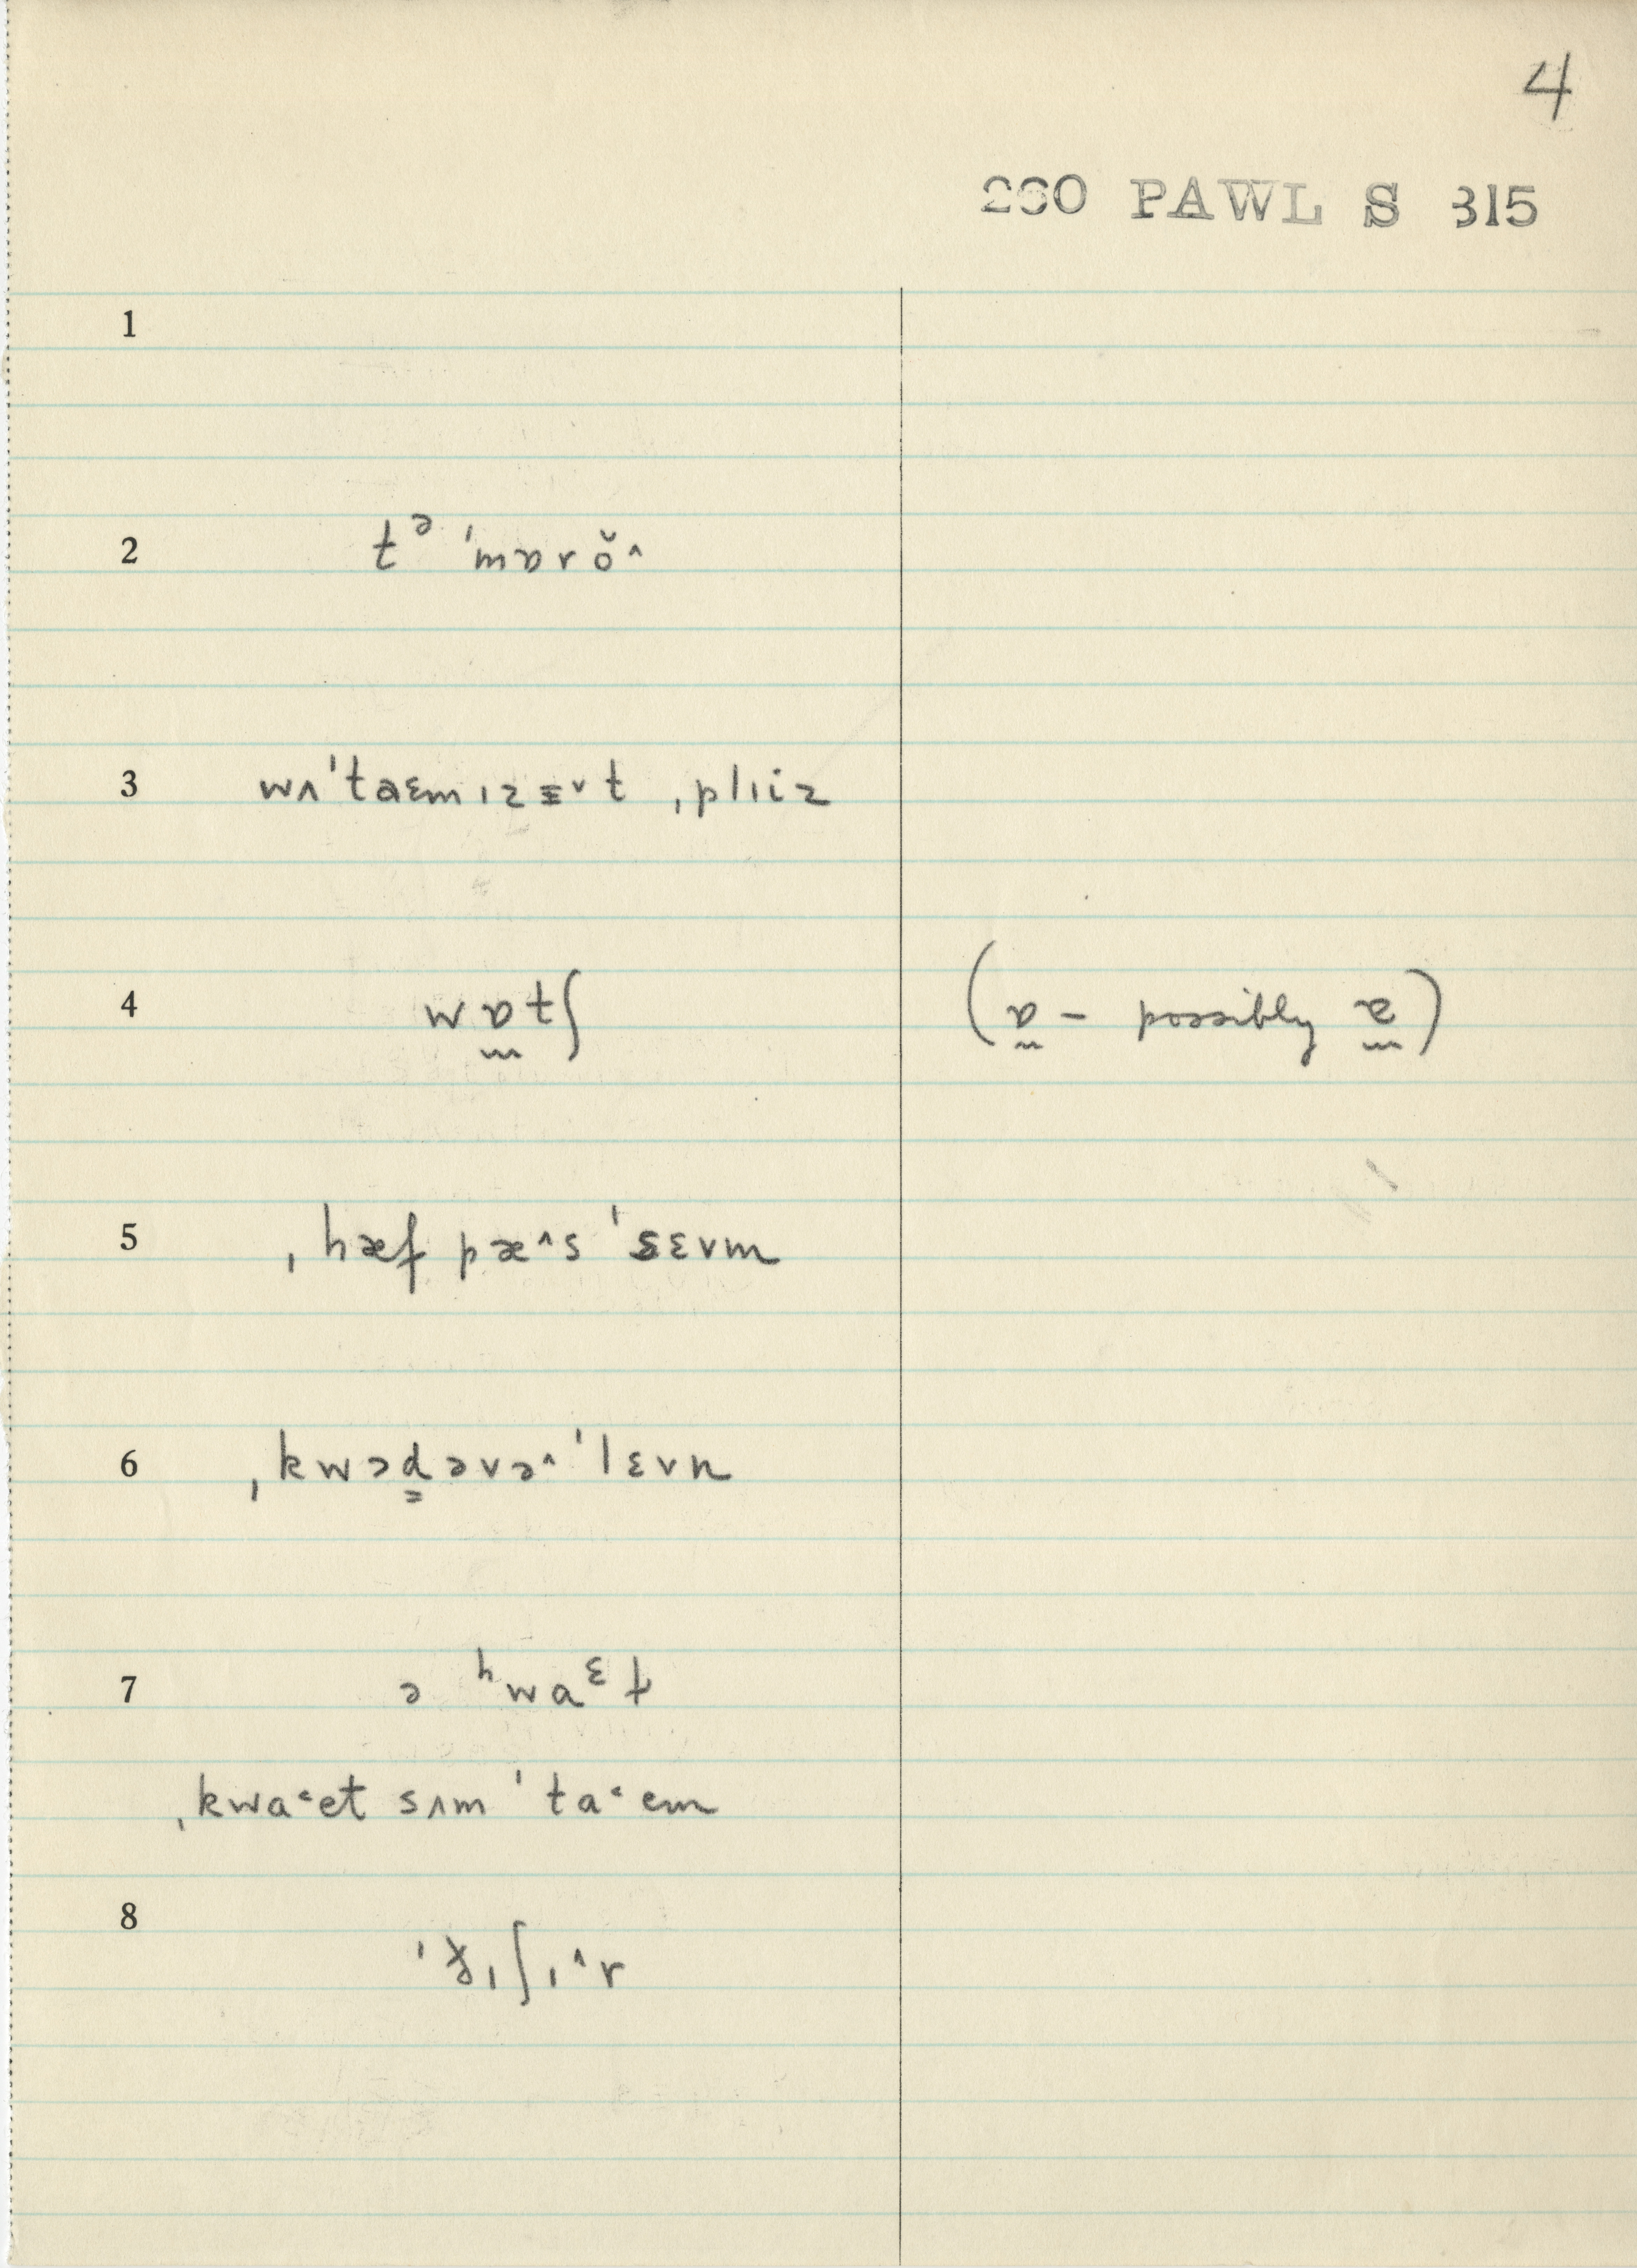 4
260 PAWL S 315
1
2 tᵊ ˈmɒrŏ˄
3 wʌˈtaɛmɪzɪ˅t ˌplɪiz
4 wɒ̰tʃ (ɒ̰ - possibly a̰)
5 ˌhæf pæ˄s ˈsɛvm
6 ˌkwɔd̳əvə˄ˈlɛvn
7 ə ʰwaᵋt
ˌkwa˂et sʌm ˈta˂em
8 ɪʃɪ˄r